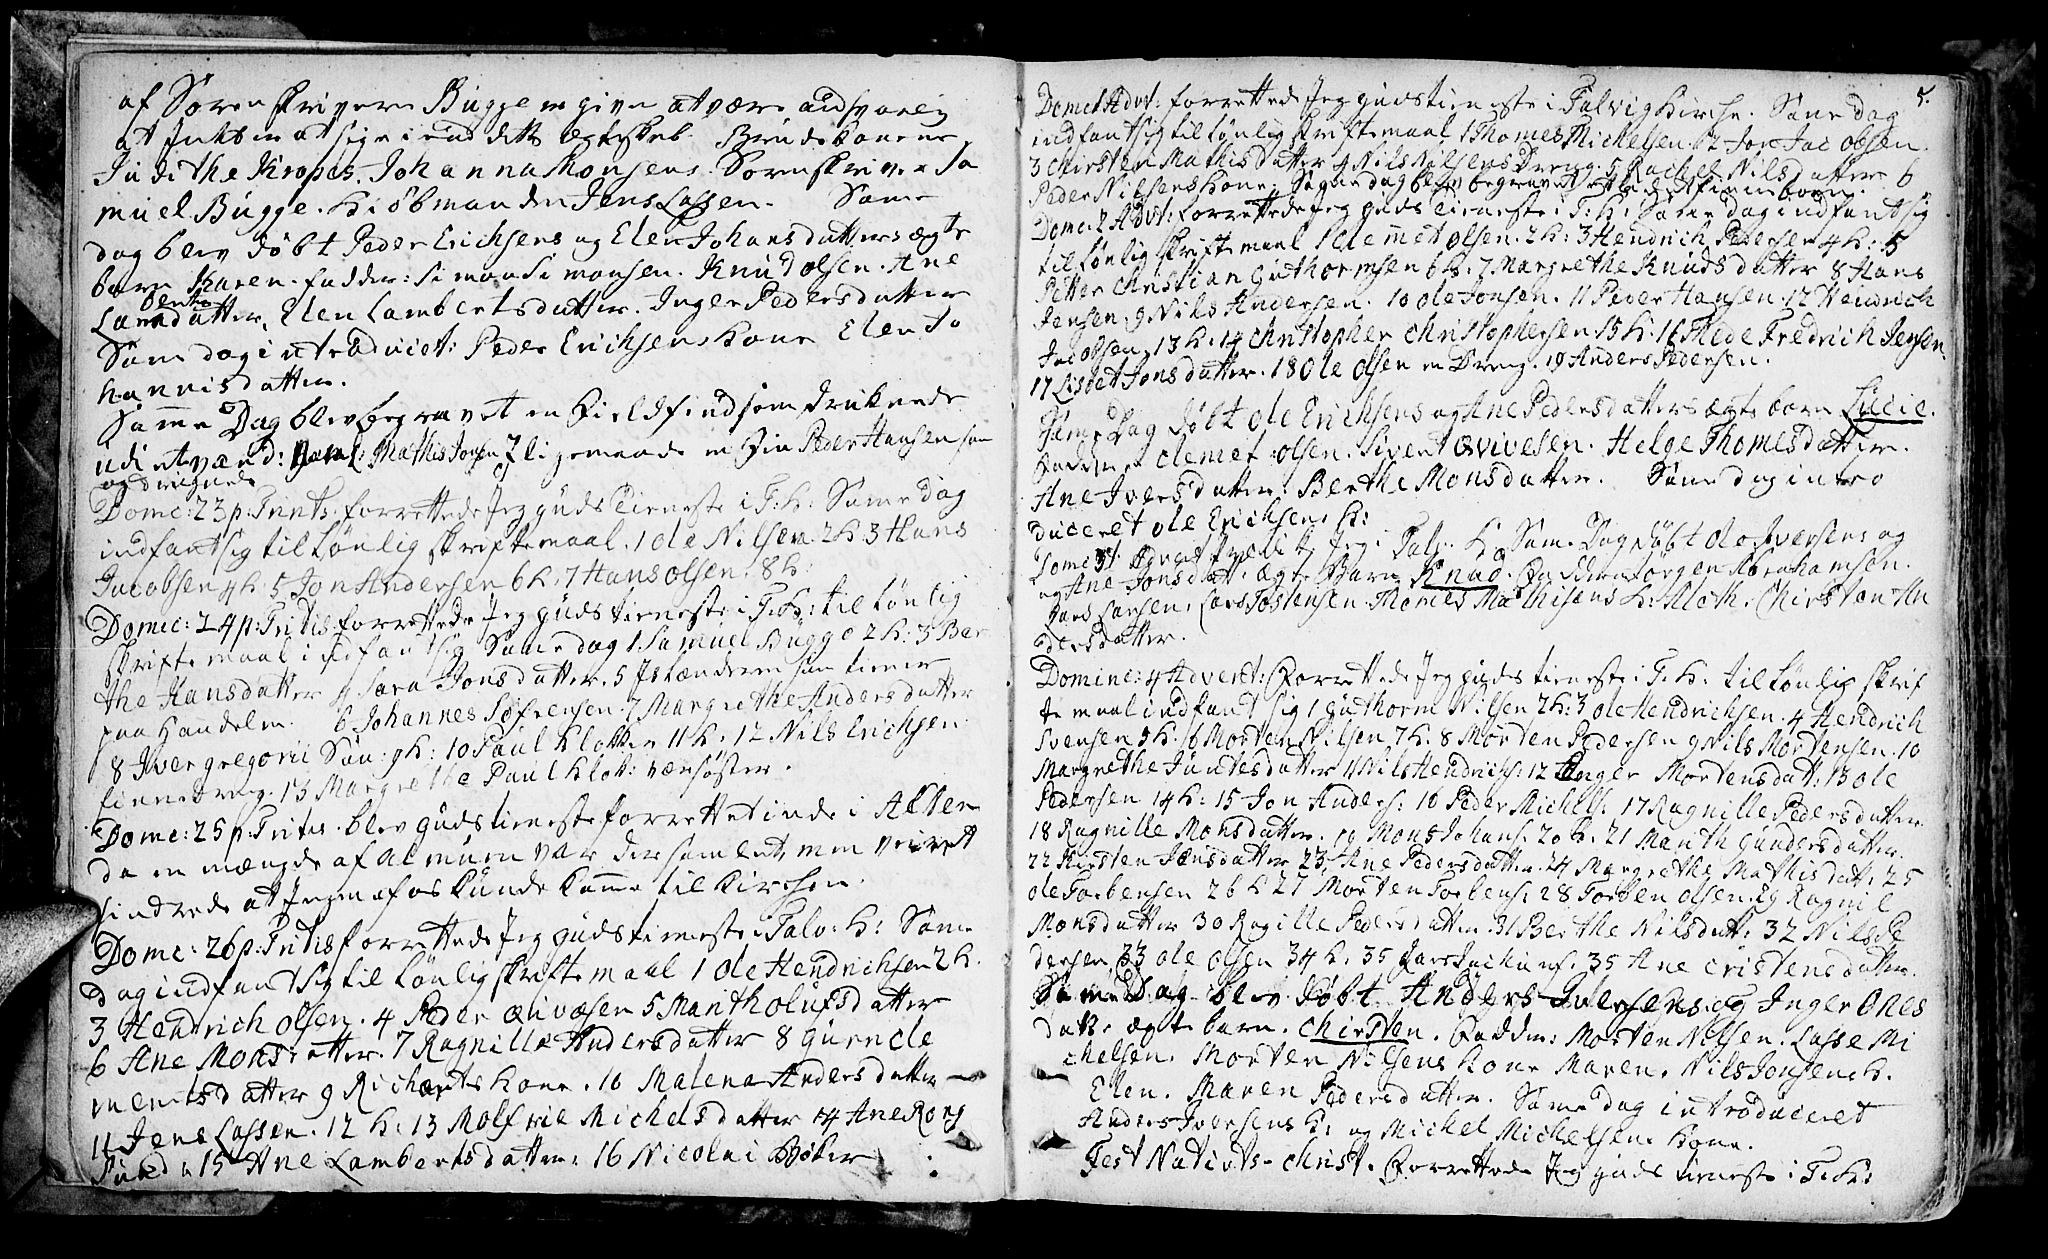 af Sorenskriveren Bugge er given at være ansvarlig
at intet er at sige imod dette ægteskab. Brudekonerne
Judithe Kropes. Johanna Monsens. Sorenskriver Sa
muel Bugge. Kiöbmanden Jens Lassen. Same
dag blev döbt Peder Erichsens og Elen Johansdatters ægte
barn Karen. fadder: Simon Simonsen. Knud olsen. Ane
Larsdatter. Elen Lambertsdatter. Inger Pedersdatter
Same dag introduceret: Peder Erichsens Kone Elen Jo
hannisdatter.
Samme Dag blev begravet en Fieldfind som druknede
udi et vand: Navnl: Mathis Jonsen ligemaade en Fin Peder Hansen som
og druknede
Domc: 23 p: Trints: forrettede Jeg guds tieneste i T: K: Same dag
indfant sig til Lönlig skriftemaal. 1 ole Nilsen. 2 K: 3 Hans
Jacobsen 4 K: 5 Jon Andersen 6 K: 7 Hans olsen. 8 K:
Domc: 24 p: Tritis forrettede Jeg guds tieneste i T: K: til Lönlig
skriftemaal indfant sig Same dag 1 Samuel Bugge 2 K: 3 Ber
the Hansdatter 4 Sara Jonsdatter. 5 Islænderen som tiener
paa Handelen. 6 Johannes Söfrensen. 7 Margrethe Andersdatter
8 Iver gregorii Sön: 9 K: 10 Paul Klokker 11 K: 12 Nils Erichsen
finnedreng. 13 Margrethe Paul Klok: værsöster.
Domc: 25 p: Trites. blev guds tieneste forrettet inde i Alten
da en mængde af Almuen var der samlent men veiret
hindrede at Ingen af os kunde komme til Kirchen.
Domc: 26 p: Tritis forrettede Jeg guds tieneste i Talv: K: Same
dag indfant sig til Lönlig skriftemaal 1 ole Hendrichsen 2 K.
3 Hendrich olsen. 4 Peder 5 Mantholufsdatter
6 Ane Monsdatter. 7 Ragnille Andersdatter 8 gurn cle
mentsdatter 9 Richarts Kone. 10 Malena Andersdatter
11 Jens Lassen. 12 K: 13 Michelsdatter 14 Ane Rong
15 Ane Lambertsdatter: 16 Nicolai
5.
Domc 1 Advt: forrettede Jeg guds tieneste i Talvig Kirche. Same dag
indfant sig til Lönlig skriftemaal 1 Thomes Michelsen. 2 Jon Jac obsen.
3 Chirsten Mathisdatter 4 Nils Nilsens Dreng. 5 Rachel Nilsdatter 6
Peder Nilsens Kone. Same dag blev begravet et finne barn.
Domc: 2 Advt: forrettede Jeg guds tieneste i T: K: Same dag indfant sig
til Lönlig skriftemaal 1 Clemet olsen. 2 K: 3 Hendrich Pedersen 4 K: 5
Petter Christian Guthormsen 6 K: 7 Margrethe Knudsdatter 8 Hans
Jensen. 9 Nils Andersen. 10 ole Jonsen. 11 Peder Hansen. 12 Hendrich
Jacobsen. 13 K: 14 Christopher Christophersen 15 K: 16 Thede Fredrich Jensen
17 Lisbet Jonsdatter. 18 ole olsen en Dreng. 19 Anders Pedersen.
Same Dag döbt ole Erichsens og Ane Pedersdatters ægte barn Lucie.
Fadder Clemet olsen. Sivert Helge Thomesdatter.
Ane Iversdatter. Berthe Monsdatter. Same dag intro
duceret ole Erichsens K:
Domc 3 Advent Jeg i Talv. K. Sam. Dag döbt ole Iversens og
Ane Jonsdat: ægte Barn Knud. Faddere Jörgen Abrahamsen.
Lars Larsen. Lars Tostensen. Thomes Mathisens K: Chirsten An
dersdatter.
Domine: 4 Advent: Forrettede Jeg guds tieneste i T: K: til Lönlig skrif
temaal indfant sig 1 guthorm Nilsen 2 K: 3 ole Hendrichsen. 4 Hendrich
Svensen 5 K: 6 Morten Nilsen 7 K. 8 Morten Pedersen 9 Nils Mortensen. 10
Margrethe Juntesdatter 11 Nils Hendrichs: 12 Inger Mortensdat: 13 ole
Pedersen 14 K: 15 Jon Anders: 16 Peder Michels: 17 Ragnille Pedersdatter
18 Ragnille Monsdatter. 19 Mons Johans: 20 K: 21 Manth Gundersdatter.
22 Kirsten Jensdatter 23. Ane Pedersdatter. 24 Margrethe Mathisdat: 25
ole Torbensen 26 K 27 Morten Torbens: 28 Torben olsen. 29 Ragnil
Monsdatter 30 Ragille Pedersdatter 31 Berthe Nilsdatt: 32 Nils Pe
dersen 33 ole olsen 34 K: 35 Lars Jachims: 35 Ane Cristensdatter.
Same Dag blev döbt Anders Iversens og Inger Oles
datter ægte barn. Chirsten. Fadder: Morten Nilsen. Lasse Mi
chelsen. Morten Nilsens Kone Maren. Nils Jonsen K.
Elen. Maren Pedersdatter. Same dag introduceret
Anders Iversens K: og Michel Michelsens Kone.
Fest Nativts-Christ. Forrettede Jeg guds tieneste i T: K: